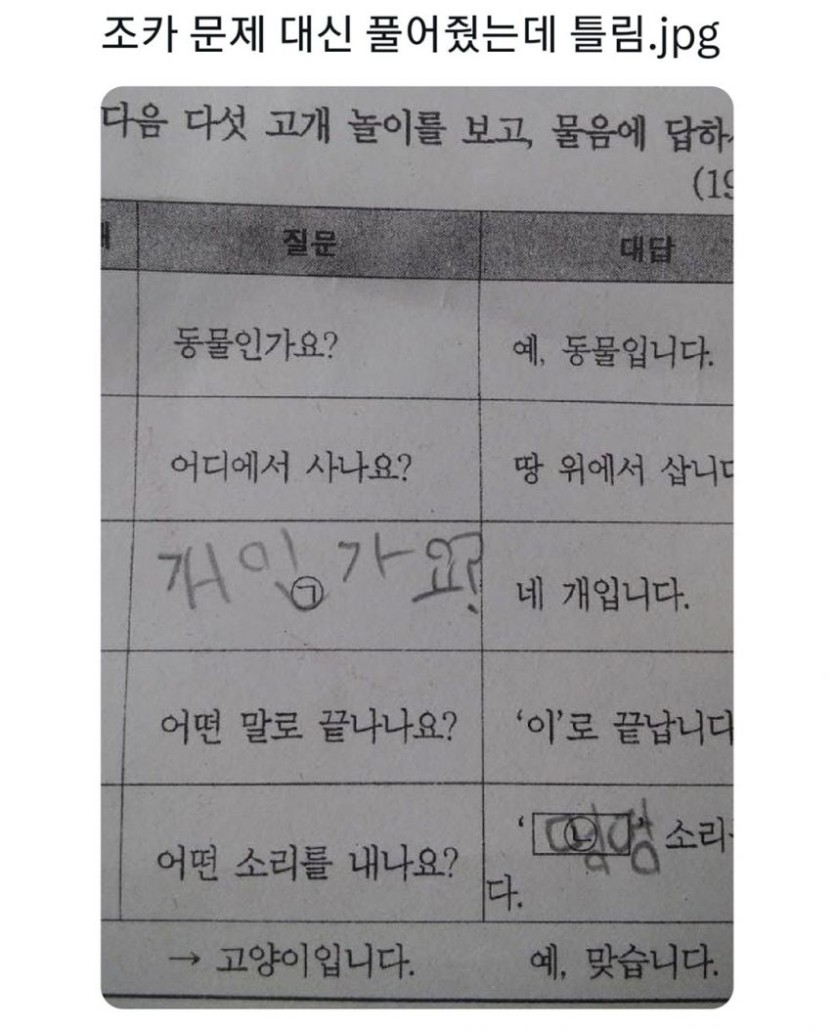 조카 문제 대신 풀어줬는데 틀림.jpg
다음 다섯 고개 놀이를 보고, 물음에 답하
(19
질문 대답
동물인가요? 예, 동물입니다.
어디에서 사나요? 땅 위에서 삽니다
개인가요? ㉠ 네 개입니다.
어떤 말로 끝나나요? ‘이’로 끝납니다
어떤 소리를 내나요? ‘ ㉡ ’ 소리
다.
→ 고양이입니다. 예, 맞습니다.